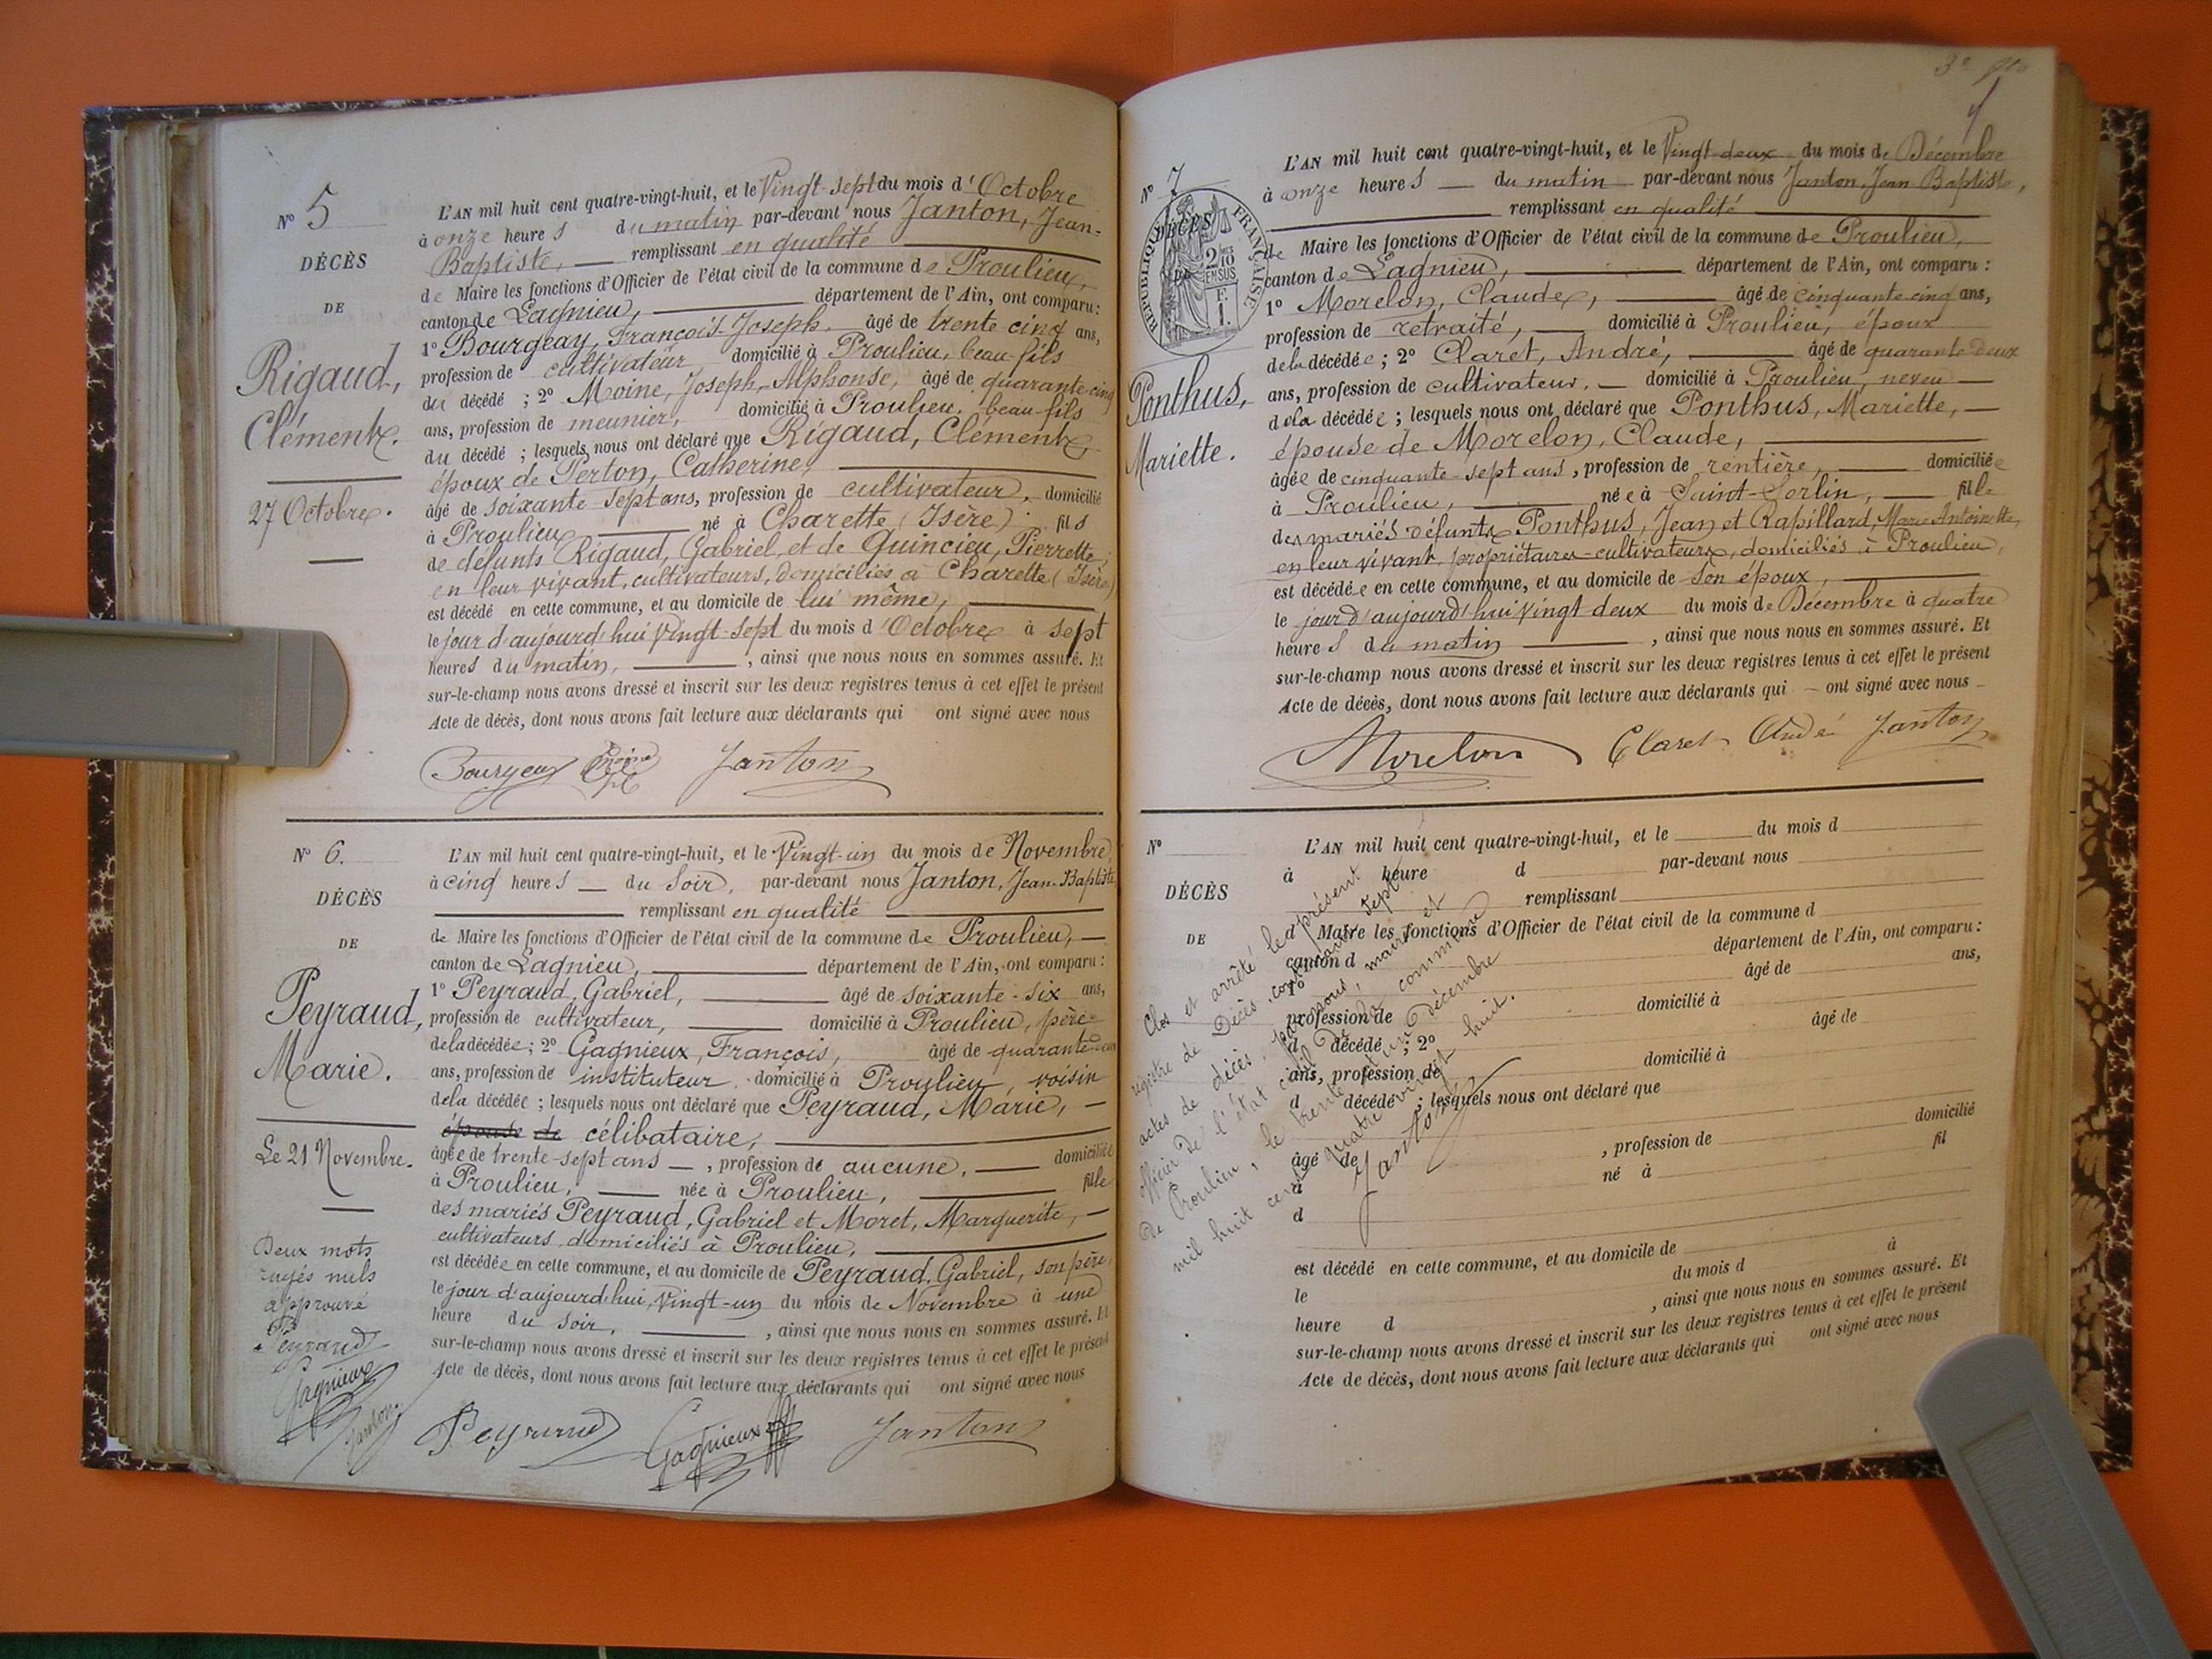 N° 5
DÉCÈS
DE
Rigaud,
Clément.
27 Octobre.
L'AN mil huit cent quatre-vingt-huit, et le Vingt-sept du mois d'Octobre
à onze heures du matin par-devant nous Janton, Jean-
Baptiste, remplissant en qualité
de Maire les fonctions d'Officier de l'état civil de la commune de Proulieu,
canton de Lagnieu, département de l'Ain, ont comparu :
1° Bourgeay, François-Joseph. âgé de trente cinq ans,
profession de cultivateur domicilié à Proulieu, beau-fils
du décédé ; 2° Moine, Joseph-Alphonse, âgé de quarante-cinq
ans, profession de meunier, domicilié à Proulieu, beau-fils
du décédé ; lesquels nous ont déclaré que Rigaud, Clément,
époux de Perton, Catherine,
âgé de soixante-sept ans, profession de cultivateur, domicilié
à Proulieu né à Charette (Isère) fils
de défunts Rigaud, Gabriel, et de Quincieu, Pierrette,
en leur vivant, cultivateurs, domiciliés à Charette (Isère)
est décédé en cette commune, et au domicile de lui même,
le jour d'aujourd'hui Vingt-sept du mois d'Octobre à sept
heures du matin, , ainsi que nous nous en sommes assuré. Et
sur-le-champ nous avons dressé et inscrit sur les deux registres tenus à cet effet le présent
Acte de décès, dont nous avons fait lecture aux déclarants qui ont signé avec nous
Bourgeay Moine Janton
N° 6.
DÉCÈS
DE
Peyraud,
Marie.
Le 21 Novembre.
Deux mots
rayés nuls
approuvé
Peyraud
Gagnieux
Janton
L'AN mil huit cent quatre-vingt-huit, et le Vingt-un du mois de Novembre,
à cinq heures du soir, par-devant nous Janton, Jean-Baptiste
remplissant en qualité
de Maire les fonctions d'Officier de l'état civil de la commune de Proulieu,
canton de Lagnieu, département de l'Ain, ont comparu :
1° Peyraud, Gabriel, âgé de soixante-six ans,
profession de cultivateur, domicilié à Proulieu, père
de la décédée ; 2° Gagnieux, François, âgé de quarante
ans, profession de instituteur, domicilié à Proulieu, voisin
de la décédée ; lesquels nous ont déclaré que Peyraud, Marie,
épouse de célibataire,
âgée de trente-sept ans , profession de aucune, domiciliée
à Proulieu, née à Proulieu, fille
des mariés Peyraud, Gabriel et Moret, Marguerite,
cultivateurs, domiciliés à Proulieu,
est décédée en cette commune, et au domicile de Peyraud, Gabriel, son père,
le jour d'aujourd'hui, Vingt-un du mois de Novembre à une
heure du soir, , ainsi que nous nous en sommes assuré. Et
sur-le-champ nous avons dressé et inscrit sur les deux registres tenus à cet effet le présent
Acte de décès, dont nous avons fait lecture aux déclarants qui ont signé avec nous
Peyraud Gagnieux Janton
3e
N° 7
DÉCÈS
DE
RÉPUBLIQUE FRANÇAISE
2/10 EN SUS
F. 1.
Ponthus,
Mariette.
L'AN mil huit cent quatre-vingt-huit, et le Vingt-deux du mois de Décembre
à onze heures du matin par-devant nous Janton, Jean-Baptiste,
remplissant en qualité
de Maire les fonctions d'Officier de l'état civil de la commune de Proulieu,
canton de Lagnieu, département de l'Ain, ont comparu :
1° Morelon, Claude, âgé de cinquante-cinq ans,
profession de retraité, domicilié à Proulieu, époux
de la décédée ; 2° Claret, André, âgé de quarante-deux
ans, profession de cultivateur. domicilié à Proulieu, neveu
de la décédée ; lesquels nous ont déclaré que Ponthus, Mariette,
épouse de Morelon, Claude,
âgée de cinquante-sept ans, profession de rentière, domiciliée
à Proulieu, née à Saint-Sorlin, fille
des mariés défunts Ponthus, Jean et Rapillard, Marie Antoinette,
en leur vivant propriétaires-cultivateurs, domiciliés à Proulieu,
est décédée en cette commune, et au domicile de son époux,
le jour d'aujourd'hui Vingt-deux du mois de Décembre à quatre
heures du matin , ainsi que nous nous en sommes assuré. Et
sur-le-champ nous avons dressé et inscrit sur les deux registres tenus à cet effet le présent
Acte de décès, dont nous avons fait lecture aux déclarants qui ont signé avec nous
Morelon Claret André Janton
N°
DÉCÈS
DE
L'AN mil huit cent quatre-vingt-huit, et le du mois d
à heure d par-devant nous
remplissant
d Maire les fonctions d'Officier de l'état civil de la commune d
canton d département de l'Ain, ont comparu :
1° âgé de ans,
profession de domicilié à
d décédé ; 2° âgé de
ans, profession de domicilié à
d décédé ; lesquels nous ont déclaré que
âgé de , profession de domicilié
à né à fil
d
est décédé en cette commune, et au domicile de
le du mois d à
heure d , ainsi que nous nous en sommes assuré. Et
sur-le-champ nous avons dressé et inscrit sur les deux registres tenus à cet effet le présent
Acte de décès, dont nous avons fait lecture aux déclarants qui ont signé avec nous
Clos et arrêté le présent
registre de Décès, contenant sept
actes de décès, par nous, maire et
officier de l'état civil de la commune
de Proulieu, le trente-un décembre
mil huit cent quatre-vingt-huit.
Janton